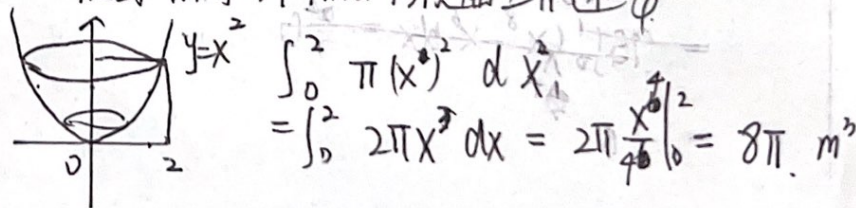 y=x²
0 2
∫₀² π(x)² dx²
=∫₀² 2πx³ dx = 2π x⁴/4 |₀² = 8π. m³